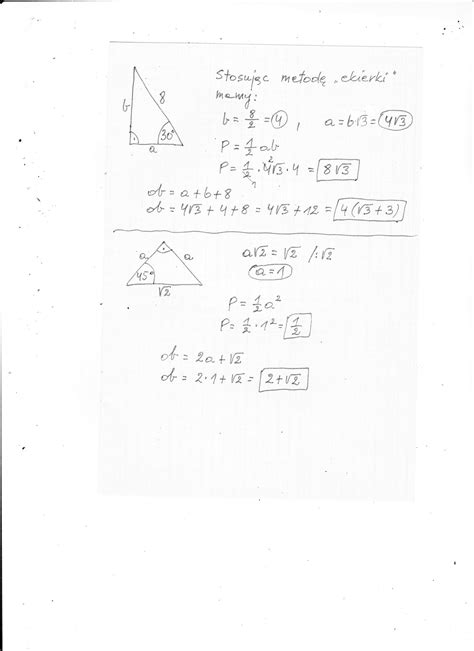 Stosując metodę „ekierki”
mamy:
b 8 30° a
b = 8/2 = 4 , a = b√3 = 4√3
P = 1/2 ab
P = 1/2 · 4√3 · 4 = 8√3
2
1
ob = a + b + 8
ob = 4√3 + 4 + 8 = 4√3 + 12 = 4(√3 + 3)
a a 45° √2
a√2 = √2 /:√2
a = 1
P = 1/2 a²
P = 1/2 · 1² = 1/2
ob = 2a + √2
ob = 2·1 + √2 = 2 + √2